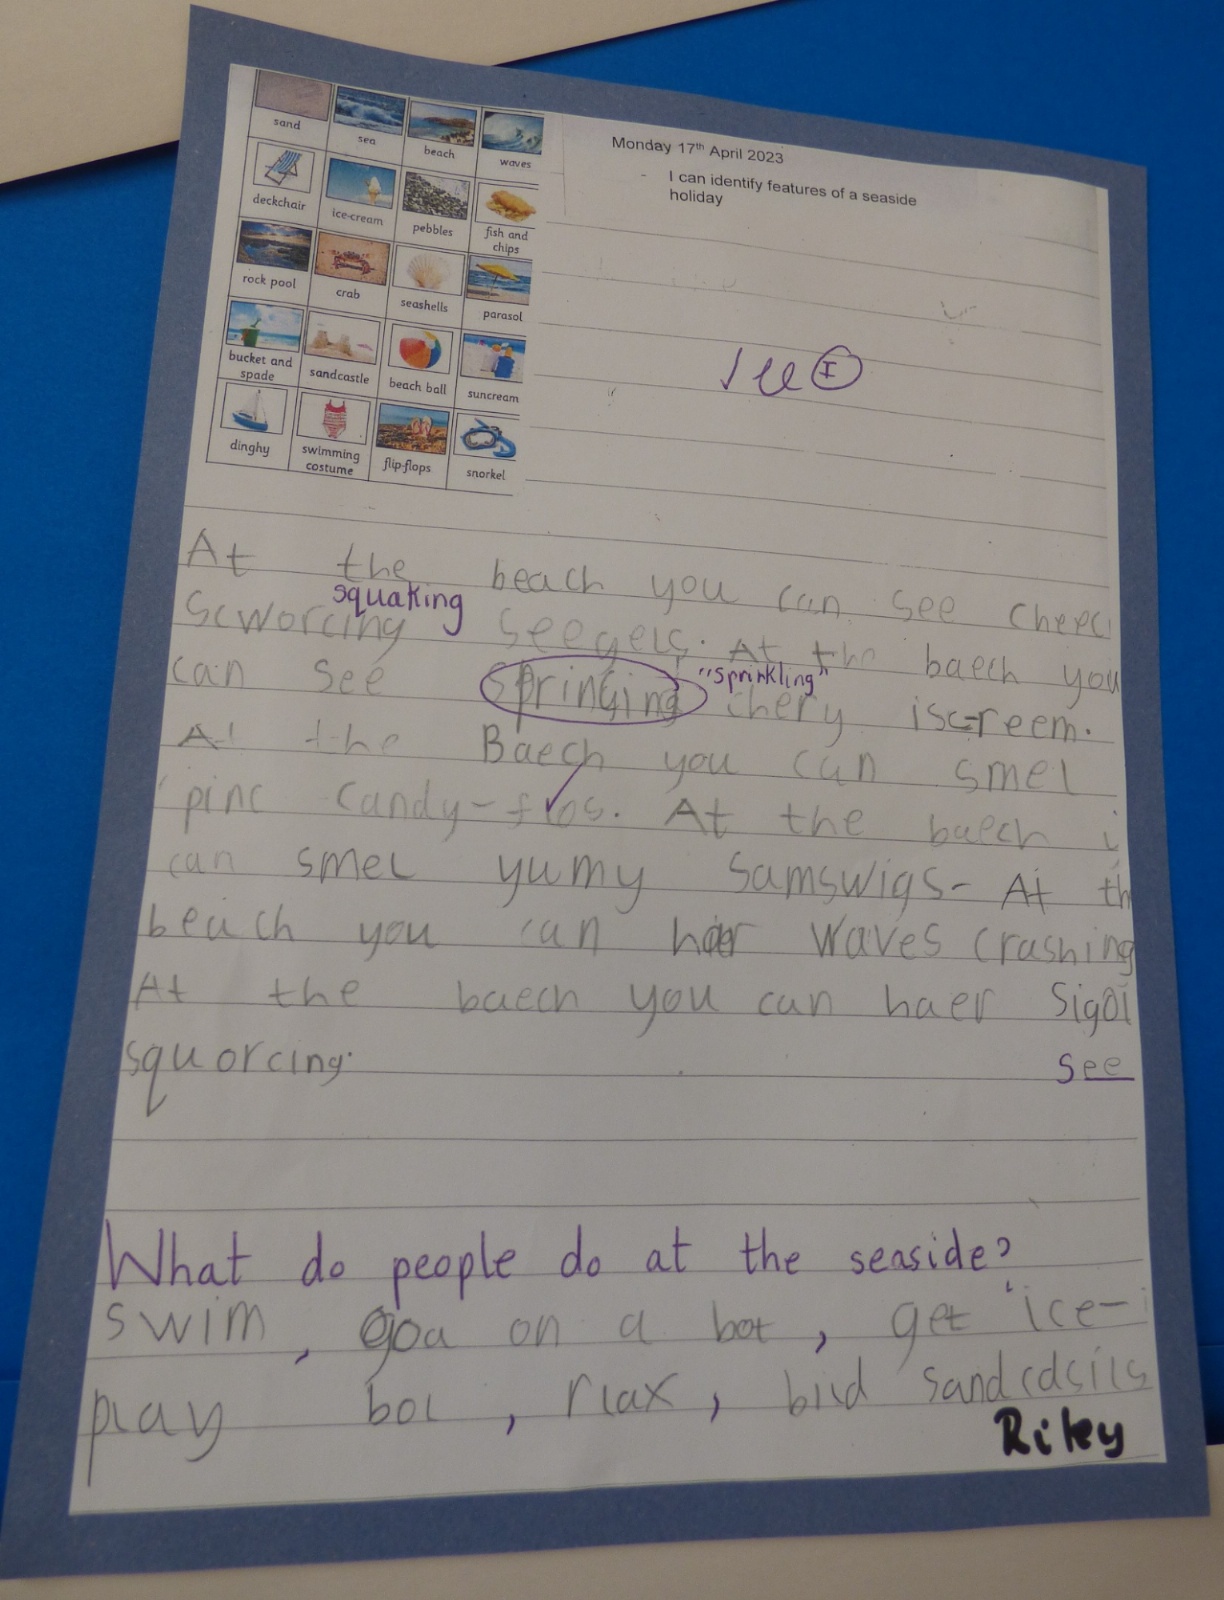 sand sea beach waves
deckchair ice-cream pebbles fish and chips
rock pool crab seashells parasol
bucket and spade sandcastle beach ball suncream
dinghy swimming costume flip-flops snorkel
Monday 17th April 2023
- I can identify features of a seaside
holiday
I
At the beach you can see cheec
squaking
Scworcing seegels. At the baech you
can see springing "sprinkling" chery iscreem.
At the Baech you can smel
pinc candy-flos. At the baech i
can smel yumy Samswigs- At th
beach you can haer waves crashing
At the baech you can haer Sigol
squorcing. see
What do people do at the seaside?
swim, goa on a bot, get ice-
play bol, rlax, bild sandcasils
Riley